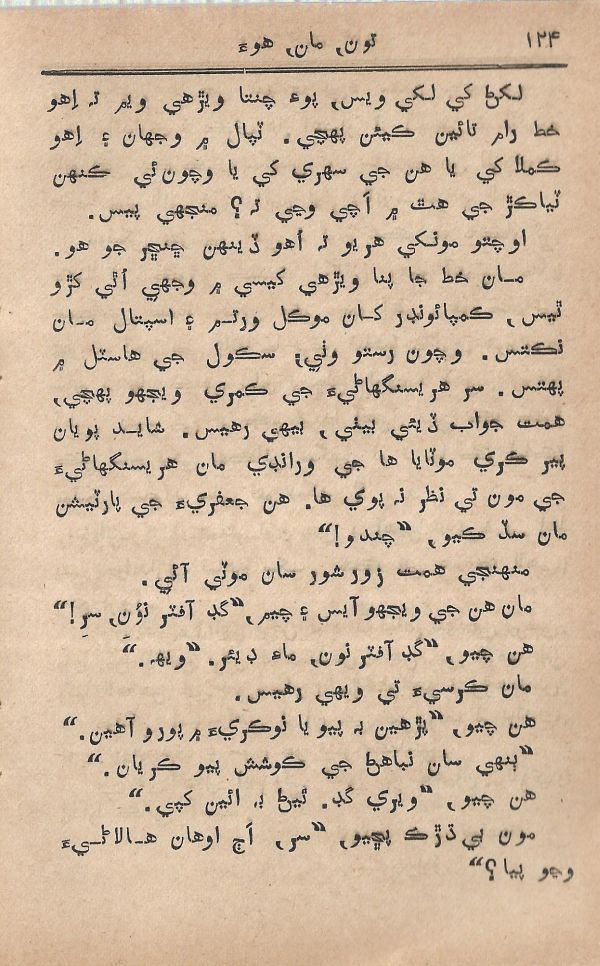 ۱۲۴
تون، مان، هوءَ
لکڻ کي لکي ويس، پوءِ چنتا ويڙهي ويم تہ اِهو
خط رام تائين ڪيئن پهچي. ٽپال ۾ وجهان ۽ اِهو
ڪملا کي يا هن جي سهري کي يا وچون ئي ڪنهن
ٽياڪڙ جي هٿ ۾ اَچي وڃي تہ؟ منجهي پيس.
اوچتو مونکي هريو تہ اُهو ڏينهن ڇنڇر جو هو.
مان خط جا پنا ويڙهي کيسي ۾ وجهي اُٿي کڙو
ٿيس، ڪمپائونڊر کان موڪل ورتم ۽ اسپتال مان
نڪتس. وچون رستو وٺي، سڪول جي هاسٽل ۾
پهتس. سر هريسنگهاڻيءَ جي ڪمري ويجهو پهچي،
همت جواب ڏيئي بيٺي، بيهي رهيس. شايد پويان
پير ڪري موٽايا ها جي ورانڊي مان هريسنگهاڻيءَ
جي مون تي نظر نہ پوي ها. هن جعفريءَ جي پارٽيشن
مان سڏ ڪيو، ”چندو!“
منهنجي همت زور شور سان موٽي آئي.
مان هن جي ويجهو آيس ۽ چيم، ”گڊ آفٽر نوُنِ، سرِ!“
هن چيو، ”گڊ آفٽر نون، ماءِ ڊيئر. ”ويهہ.“
مان ڪرسيءَ تي ويهي رهيس.
هن چيو، ”پڙهين بہ پيو يا نوڪريءَ ۾ پورو آهين.“
”ٻنهي سان نباهڻ جي ڪوشش پيو ڪريان.“
هن چيو، ”ويري گڊ. ٿيڻ بہ ائين کپي.“
مون بي ڌڙڪ پڇيو، ”سر، اَڄ اوهان هالاڻيءَ
وڃو پيا؟“